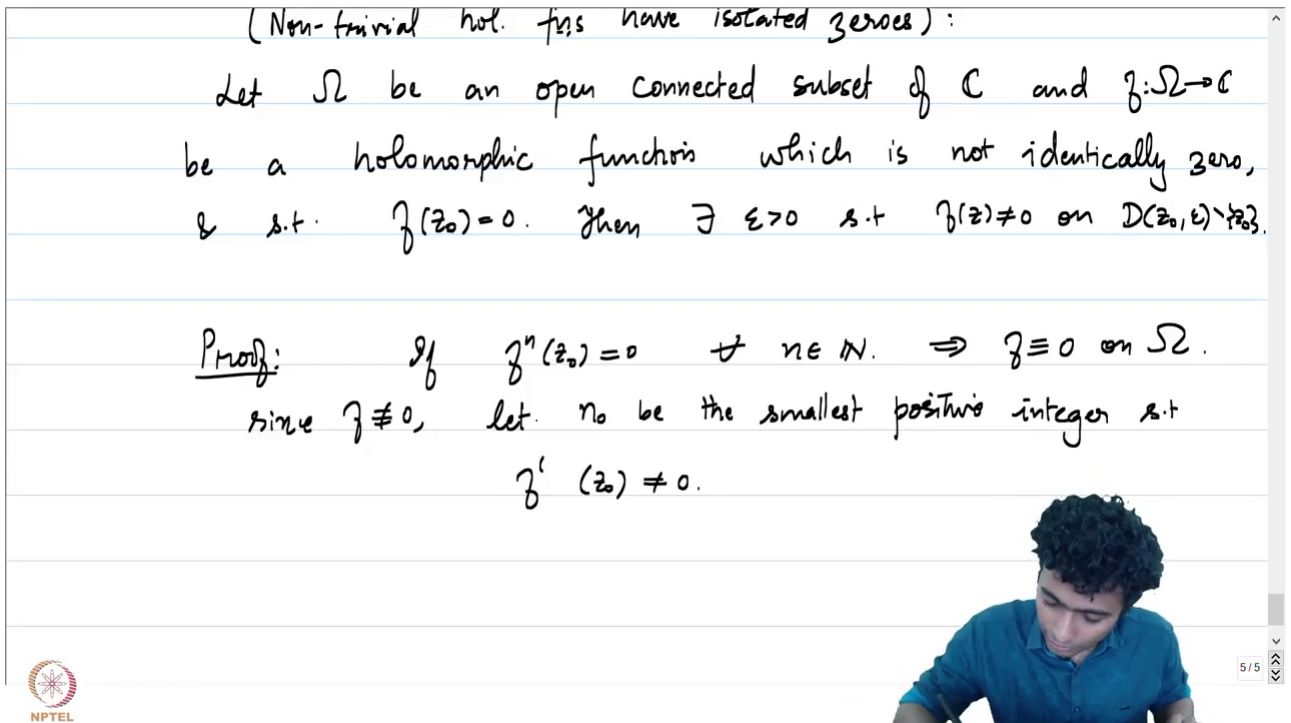 (Non-trivial hol. fns have isolated zeroes) :
Let Ω be an open connected subset of ℂ and f: Ω→ℂ
be a holomorphic function which is not identically zero,
& s.t. f(z₀) = 0. Then ∃ ε>0 s.t f(z) ≠ 0 on D(z₀, ε) \ {z₀}.
Proof: If fⁿ(z₀) = 0 ∀ n ∈ ℕ. ⇒ f ≡ 0 on Ω.
since f ≢ 0, let. n₀ be the smallest positive integer s.t
f⁽ (z₀) ≠ 0.
5 / 5
NPTEL